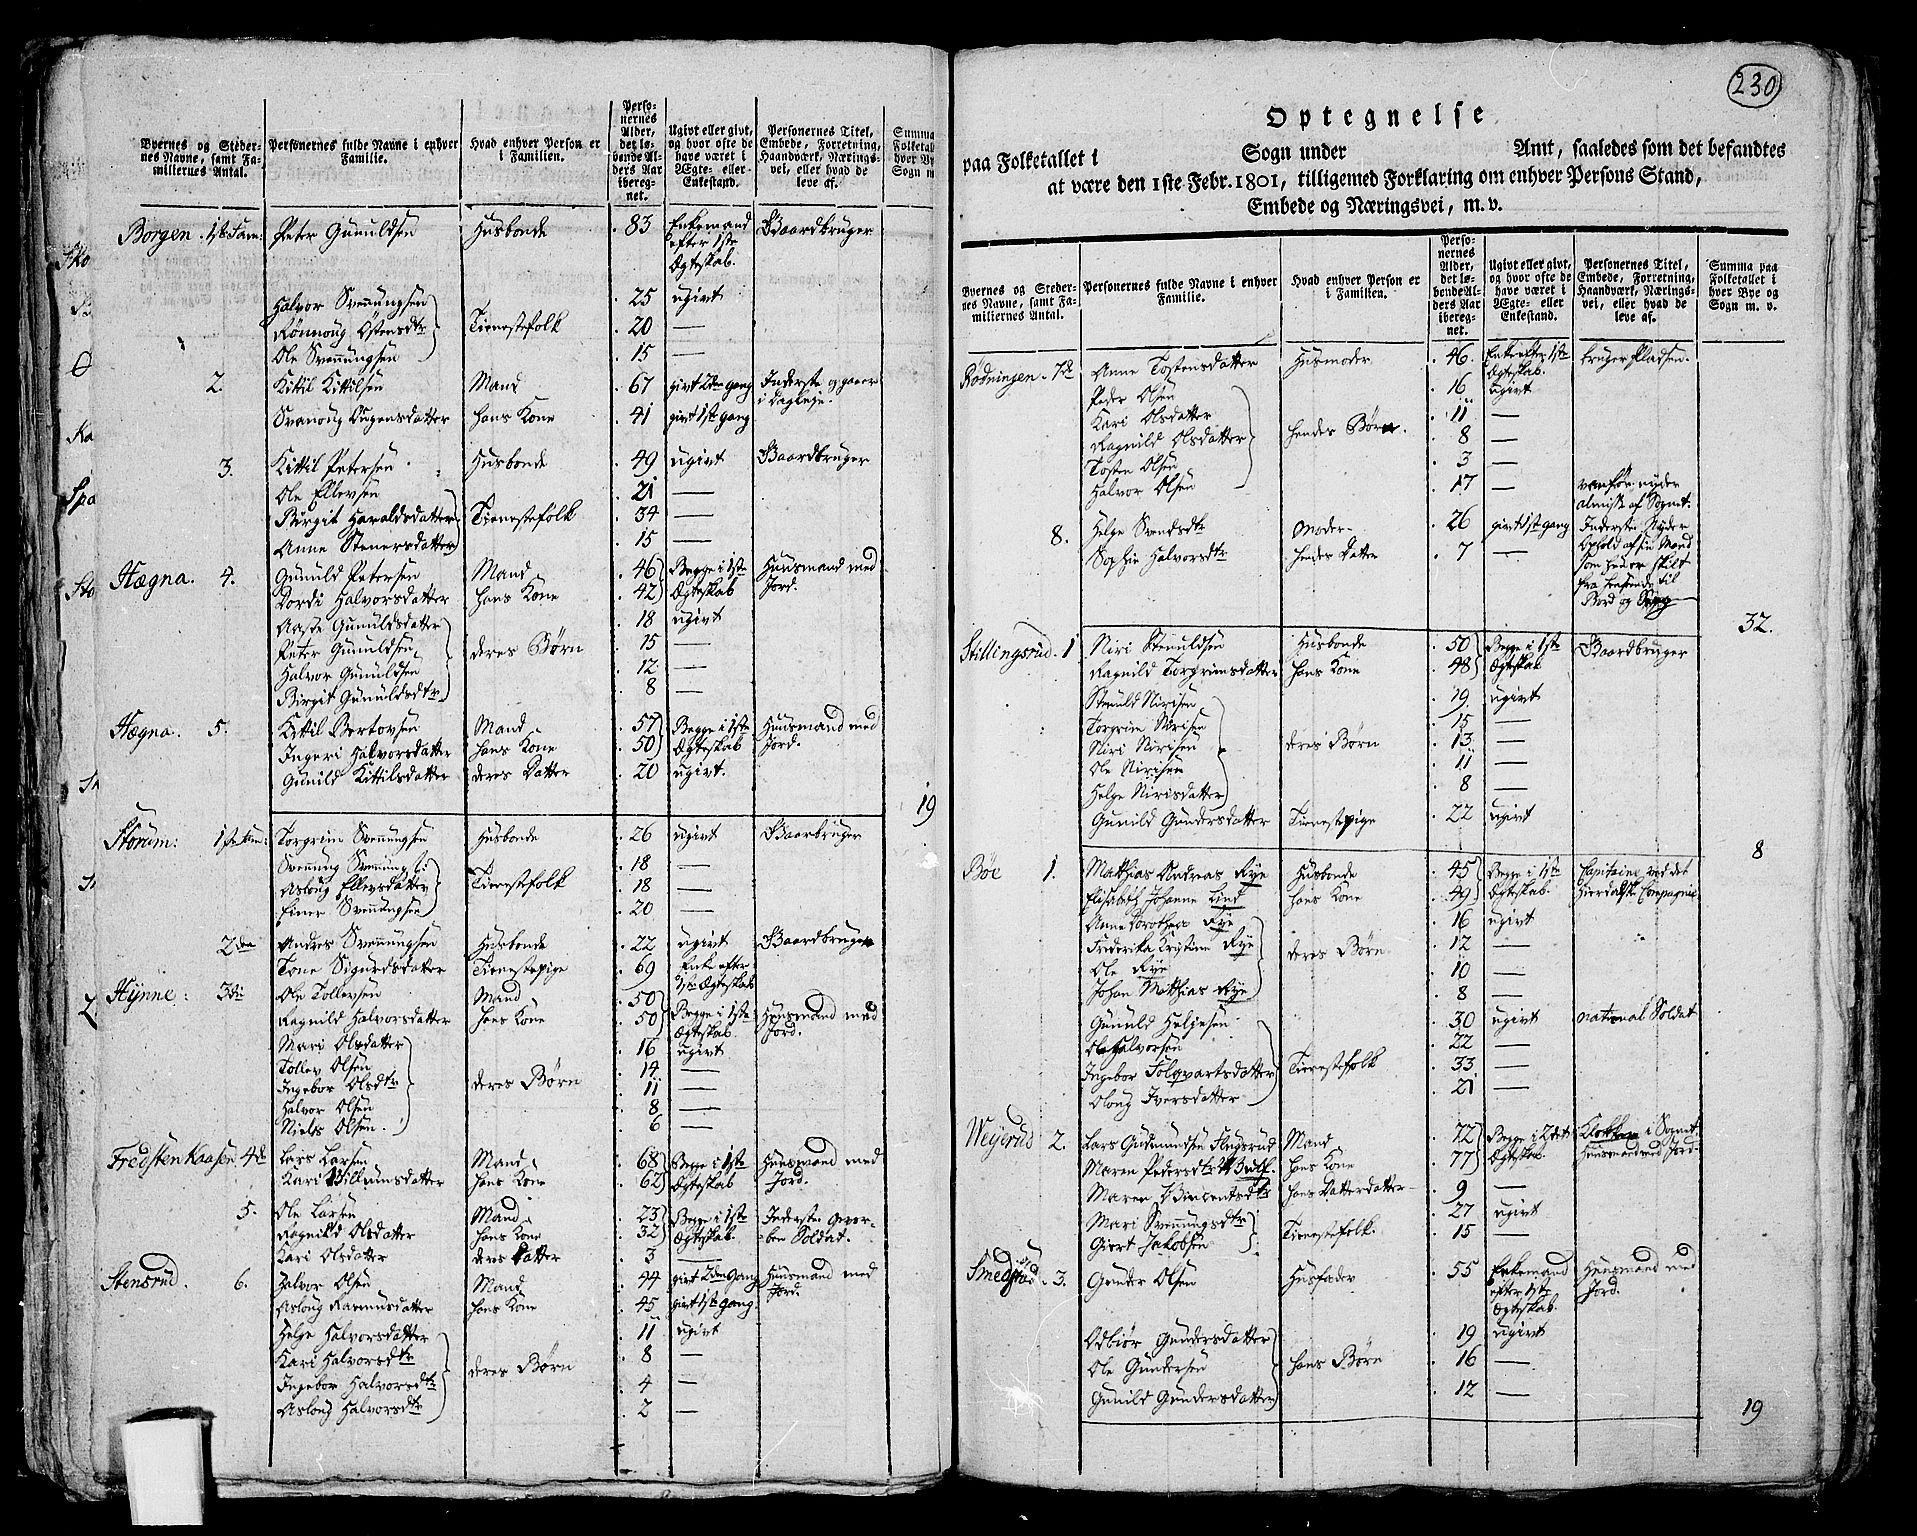 Byernes og Steder- Personernes fulde Navne i enhver Hvad enhver Person er Perso- Ugivt eller givt, Personernes Titel, Summa
nes Navne, samt Fa- Familie. i Familien. nernes og hvor ofte de Embede, Forretning, Folketal
milliernes Antal. Alder, have været i Haandværk, Nærings- hver By
det lø- Ægte- eller vei, eller hvad de Sogn m
bende Al- Enkestand. leve af.
ders Aar
iberegnet.
Borgen. 1ste Fam: Peter Gunuldsen Husbonde 83 Enkemand Gaardbruger
efter 1ste
Ægteskab.
Halvor Svenungsen 25 ugivt
Rönnoug Östensdtr Tienestefolk 20 —
Ole Svenungsen 15 —
2. Kittil Kittilsen Mand 67 givt 2den gang Inderste og gaaer
i Dagleje.
Svanoug Ougensdatter hans Kone 41 givt 1ste gang
3. Kittil Petersen Husbonde 49 ugivt Gaardbruger
Ole Ellevsen 21 —
Birgit Haraldsdatter Tienestefolk 34 —
Anne Stenersdatter 15 —
Hægna. 4. Gunuld Petersen Mand 46 Begge i 1ste Huusmand med
Dordi Halvorsdatter hans Kone 42 Ægteskab Jord.
Aaste Gunuldsdatter 18 ugivt
Peter Gunuldsen deres Børn 15 —
Halvor Gunuldsen 12 —
Birgit Gunuldsdtr 8 —
Hægna. 5. Kittil Bertovsen Mand 57 Begge i 1ste Huusmand med
Ingeri Halvorsdatter hans Kone 50 Ægteskab Jord.
Gunild Kittilsdatter deres Datter 20 ugivt.
19
Storum: 1ste Fam: Torgrim Svenungsen Husbonde 26 ugivt Gaarbruger
Svenung Svenungs: 18 —
Asloug Ellevsdatter Tienestefolk 18 —
Einer Svenungsen 20 —
2den Andres Svenungsen Husbonde 22 ugivt Gaardbruger
Tone Sigurdsdatter Tienestepige 69 Enke efter
1ste Ægteskab
Hynne: 3die Ole Tollevsen Mand 50 Begge i 1ste Huusmand med
Ragnild Halvorsdatter hans Kone 50 Ægteskab. Jord.
Mari Olsdatter 16 ugivt
Tollev Olsen 14 —
Ingebor Olsdtr deres Børn 11 —
Halvor Olsen 8 —
Niels Olsen. 6 —
Fredstenkaasen 4de Lars Larsen Mand 68 Begge i 1ste Huusmand med
Kari Villumsdatter hans Kone 62 Ægteskab Jord.
5. Ole Larsen Mand 23 Begge i 1ste Inderste Gevor-
Ragnild Olsdatter hans Kone 32 Ægteskab. ben Soldat.
Kari Olsdatter deres Datter 3 —
Stensrud. 6. Halvor Olsen Mand 44 givt 2den Gang Huusmand med
Asloug Rasmusdatter hans Kone 45 givt 1ste Gang. Jord.
Helge Halvorsdatter 11 ugivt
Kari Halvorsdtr deres Børn 8 —
Ingebor Halvorsdtr 4 —
Asloug Halvorsdtr 2 —
230
Optegnelse
paa Folketallet i Sogn under Amt, saaledes som det befandtes
at være den 1ste Febr. 1801, tilligemed Forklaring om enhver Persons Stand,
Embede og Næringsvei, m. v.
Byernes og Steder- Personernes fulde Navne i enhver Hvad enhver Person er Perso- Ugivt eller givt, Personernes Titel, Summa paa
nes Navne, samt Fa- Familie. i Familien. nernes og hvor ofte de Embede, Forretning, Folketallet i
milliernes Antal. Alder, have været i Haandværk, Nærings- hver Bye og
det lø- Ægte- eller vei, eller hvad de Sogn m. v.
bende Al- Enkestand. leve af.
ders Aar
iberegnet.
Rødningen. 7de Anne Tostensdatter Husmoder 46. Enke efter 1ste bruger Pladsen.
Ægteskab.
Peder Olsen 16 ugivt
Kari Olsdatter hendes Børn. 11 —
Ragnild Olsdatter 8 —
Tosten Olsen 3 —
Halvor Olsen 17 — vanför, nyder
almisse af Sognet.
8. Helge Svendsdtr Moder 26 givt 1ste gang Inderste, Nyder
Sophie Halvorsdtr hendes Datter 7 — Ophold af sin Mand
som hun er skilt
fra hensende til
Bord og Seng
32.
Stillingsrud. 1 Niri Stenuldsen Husbonde 50 Begge i 1ste Gaardbruger
Ragnild Torgrimsdatter hans Kone 48 Ægteskab
Stenuld Nirisen 19 ugivt
Torgrim Nirisen 15 —
Niri Nirisen deres Børn 13 —
Ole Nirisen 11 —
Helge Nirisdatter 8 —
Gunild Gundersdatter Tienestepige 22 ugivt
8
Bøe 1. Matthias Andreas Rye Husbonde 45 Begge i 1ste Capitaine ved det
Elisabeth Johanne Lind hans Kone 49 Ægteskab. Hierdalske Compagnie
Anne Dorothea Rye 16 ugivt
Frederika Kristine Rye deres Børn. 12 —
Ole Rye 10 —
Johan Matthias Rye 8 —
Gunuld Heljesen 30 ugivt national Soldat
Ole Halvorsen 22 —
Ingebor Folqvartsdatter Tienestefolk 33 —
Oloug Iversdatter 21 —
Weyerud 2. Lars Gudmundsen Flugsrud Mand 72 Begge i 2det Klokker i Sognet.
Maren Pedersdtr Wulf. hans Kone 77 Ægteskab. Huusmand med Jord.
Maren Vincentsdtr hans Datterdatter 9 —
Mari Svenungsdtr Tienestefolk. 27 ugivt
Giert Jakobsen 15 —
Smedstad. 3. Gunder Olsen Husfader 55 Enkemand Huusmand med
efter 1ste Jord.
Ægteskab.
Odbiör Gundersdatter 19 ugivt
Ole Gundersen hans Børn 16 —
Gunild Gundersdatter 12 —
19